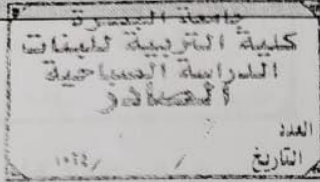 جامعة البصرة
كلية التربية للبنات
الدراسة الصباحية
الصادر
العدد
التاريخ / / ١٠٢٤